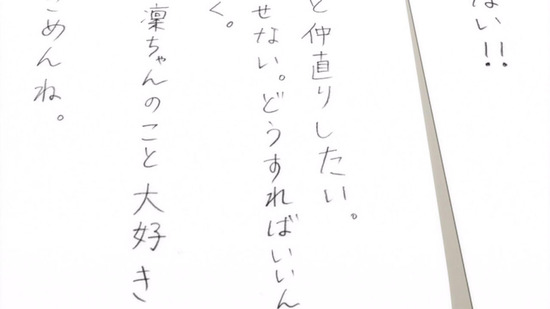 ない!!
と仲直りしたい。
せない。どうすればいいん
く。
凛ちゃんのこと大好き
ごめんね。